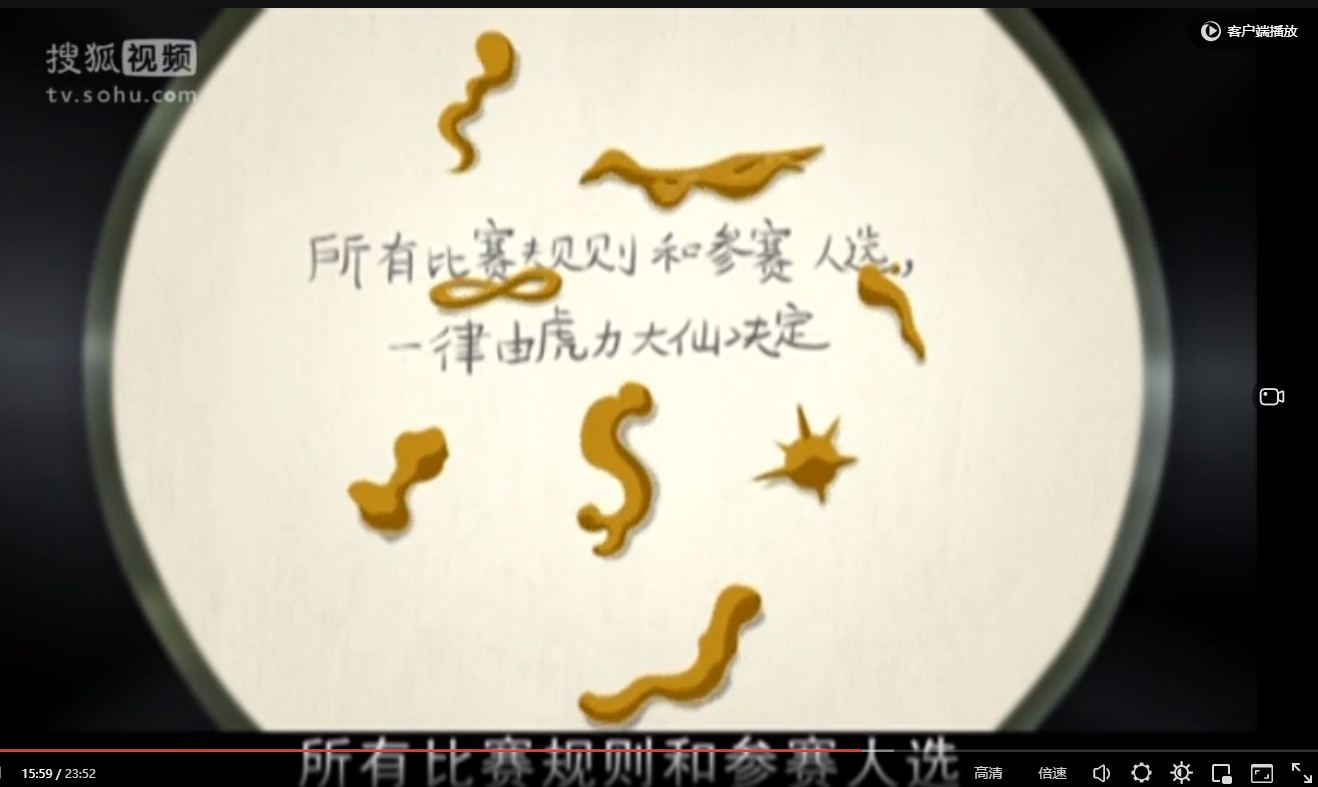 搜狐视频
tv.sohu.com
客户端播放
所有比赛规则和参赛人选，
一律由虎力大仙决定
所有比赛规则和参赛人选
15:59 / 23:52
高清
倍速